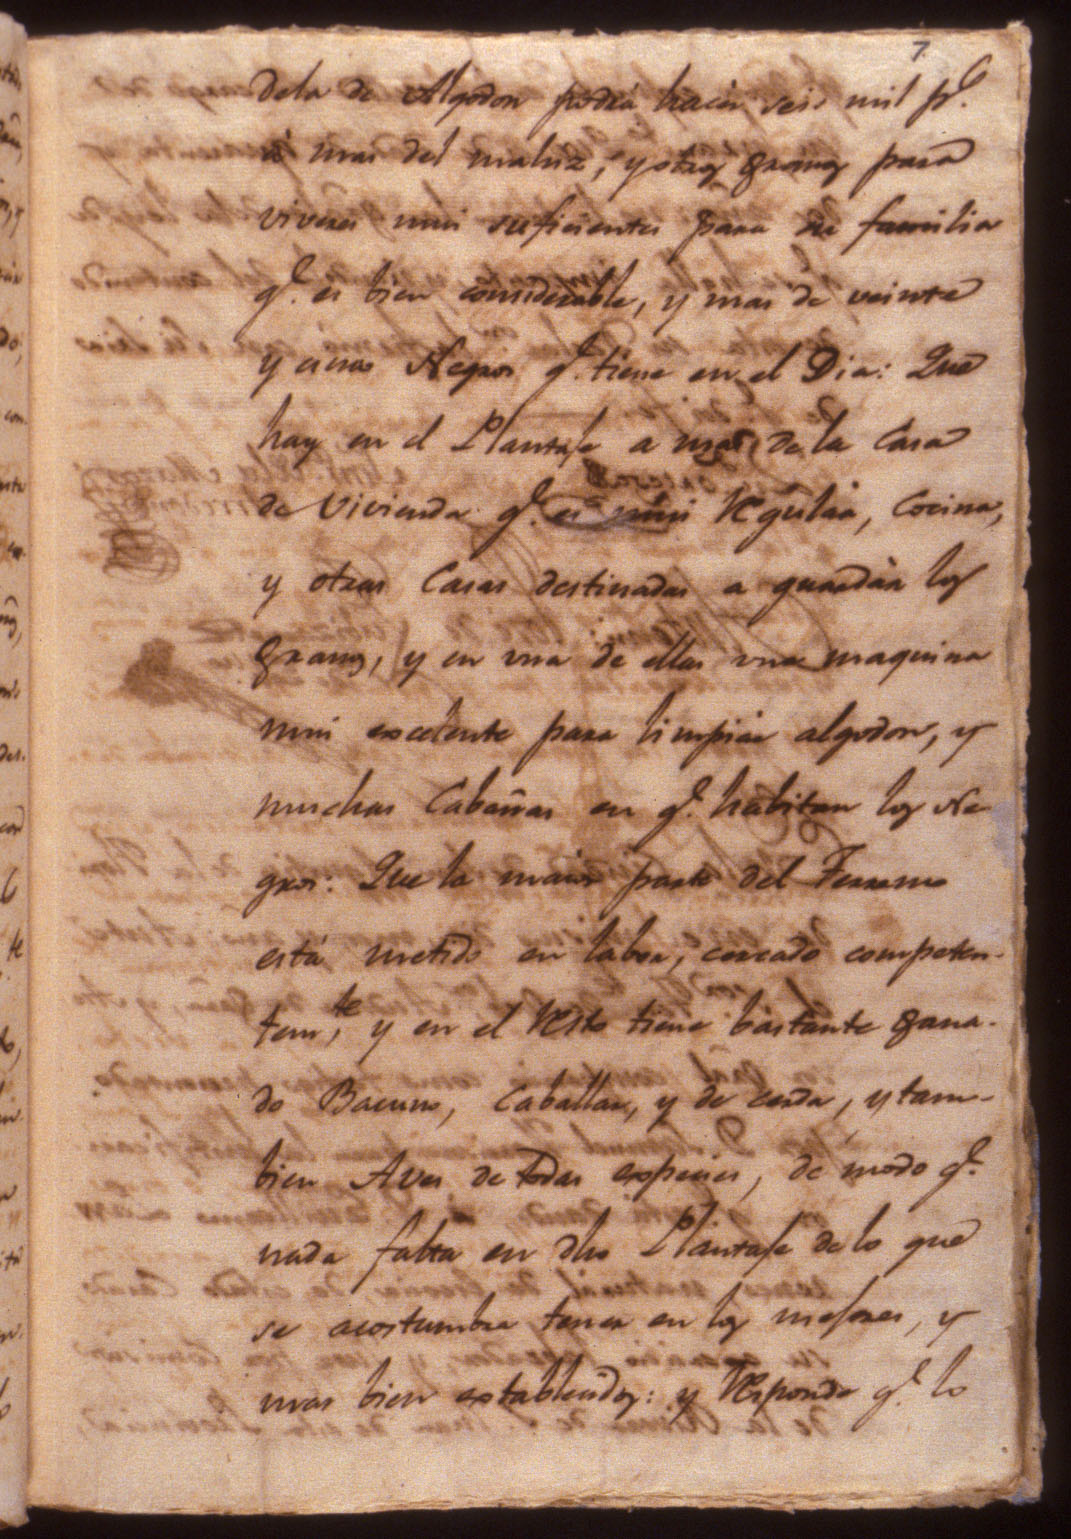 7
dela de Algodon podrá hacer seis mil p.s
á mas del mahiz, y otros granos para
viveres mui suficientes para su familia
q.e es bien considerable, y mas de veinte
y cinco Negros q.e tiene en el Dia: Que
hay en el Plantaje a mas de la Casa
de Vivienda q.e es mui Regular, Cocina,
y otras Casas destinadas a guardar los
granos, y en una de ellas una maquina
mui excelente para limpiar algodon, y
muchas Cabañas en q.e habitan los Ne
gros: Que la maior parte del Terreno
está metido en labor, cercado competen-
tem.te y en el Resto tiene bastante gana-
do Bacuno, Caballar, y de cerda, y tam-
bien Aves de todas especies, de modo q.e
nada falta en dho Plantaje de lo que
se acostumbra tener en los mejores, y
mas bien establecidos: y Responde q.e lo